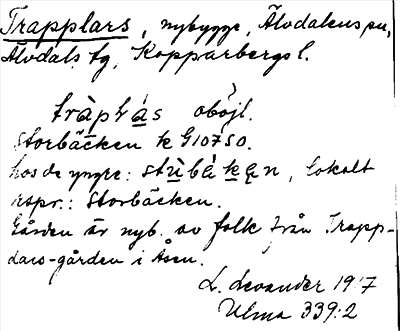 Trapplars, nybygge, Älvdalens sn,
Älvdals tg, Kopparbergs l.
tràplás oböjl.
Storbäcken k G10750.
hos de yngre: stùbékęn, lokalt
rspr.: Storbäcken.
Gården är nyb. av folk från Trapp-
lars-gården i Åsen.
L. Levander 1917
Ulma 339:2